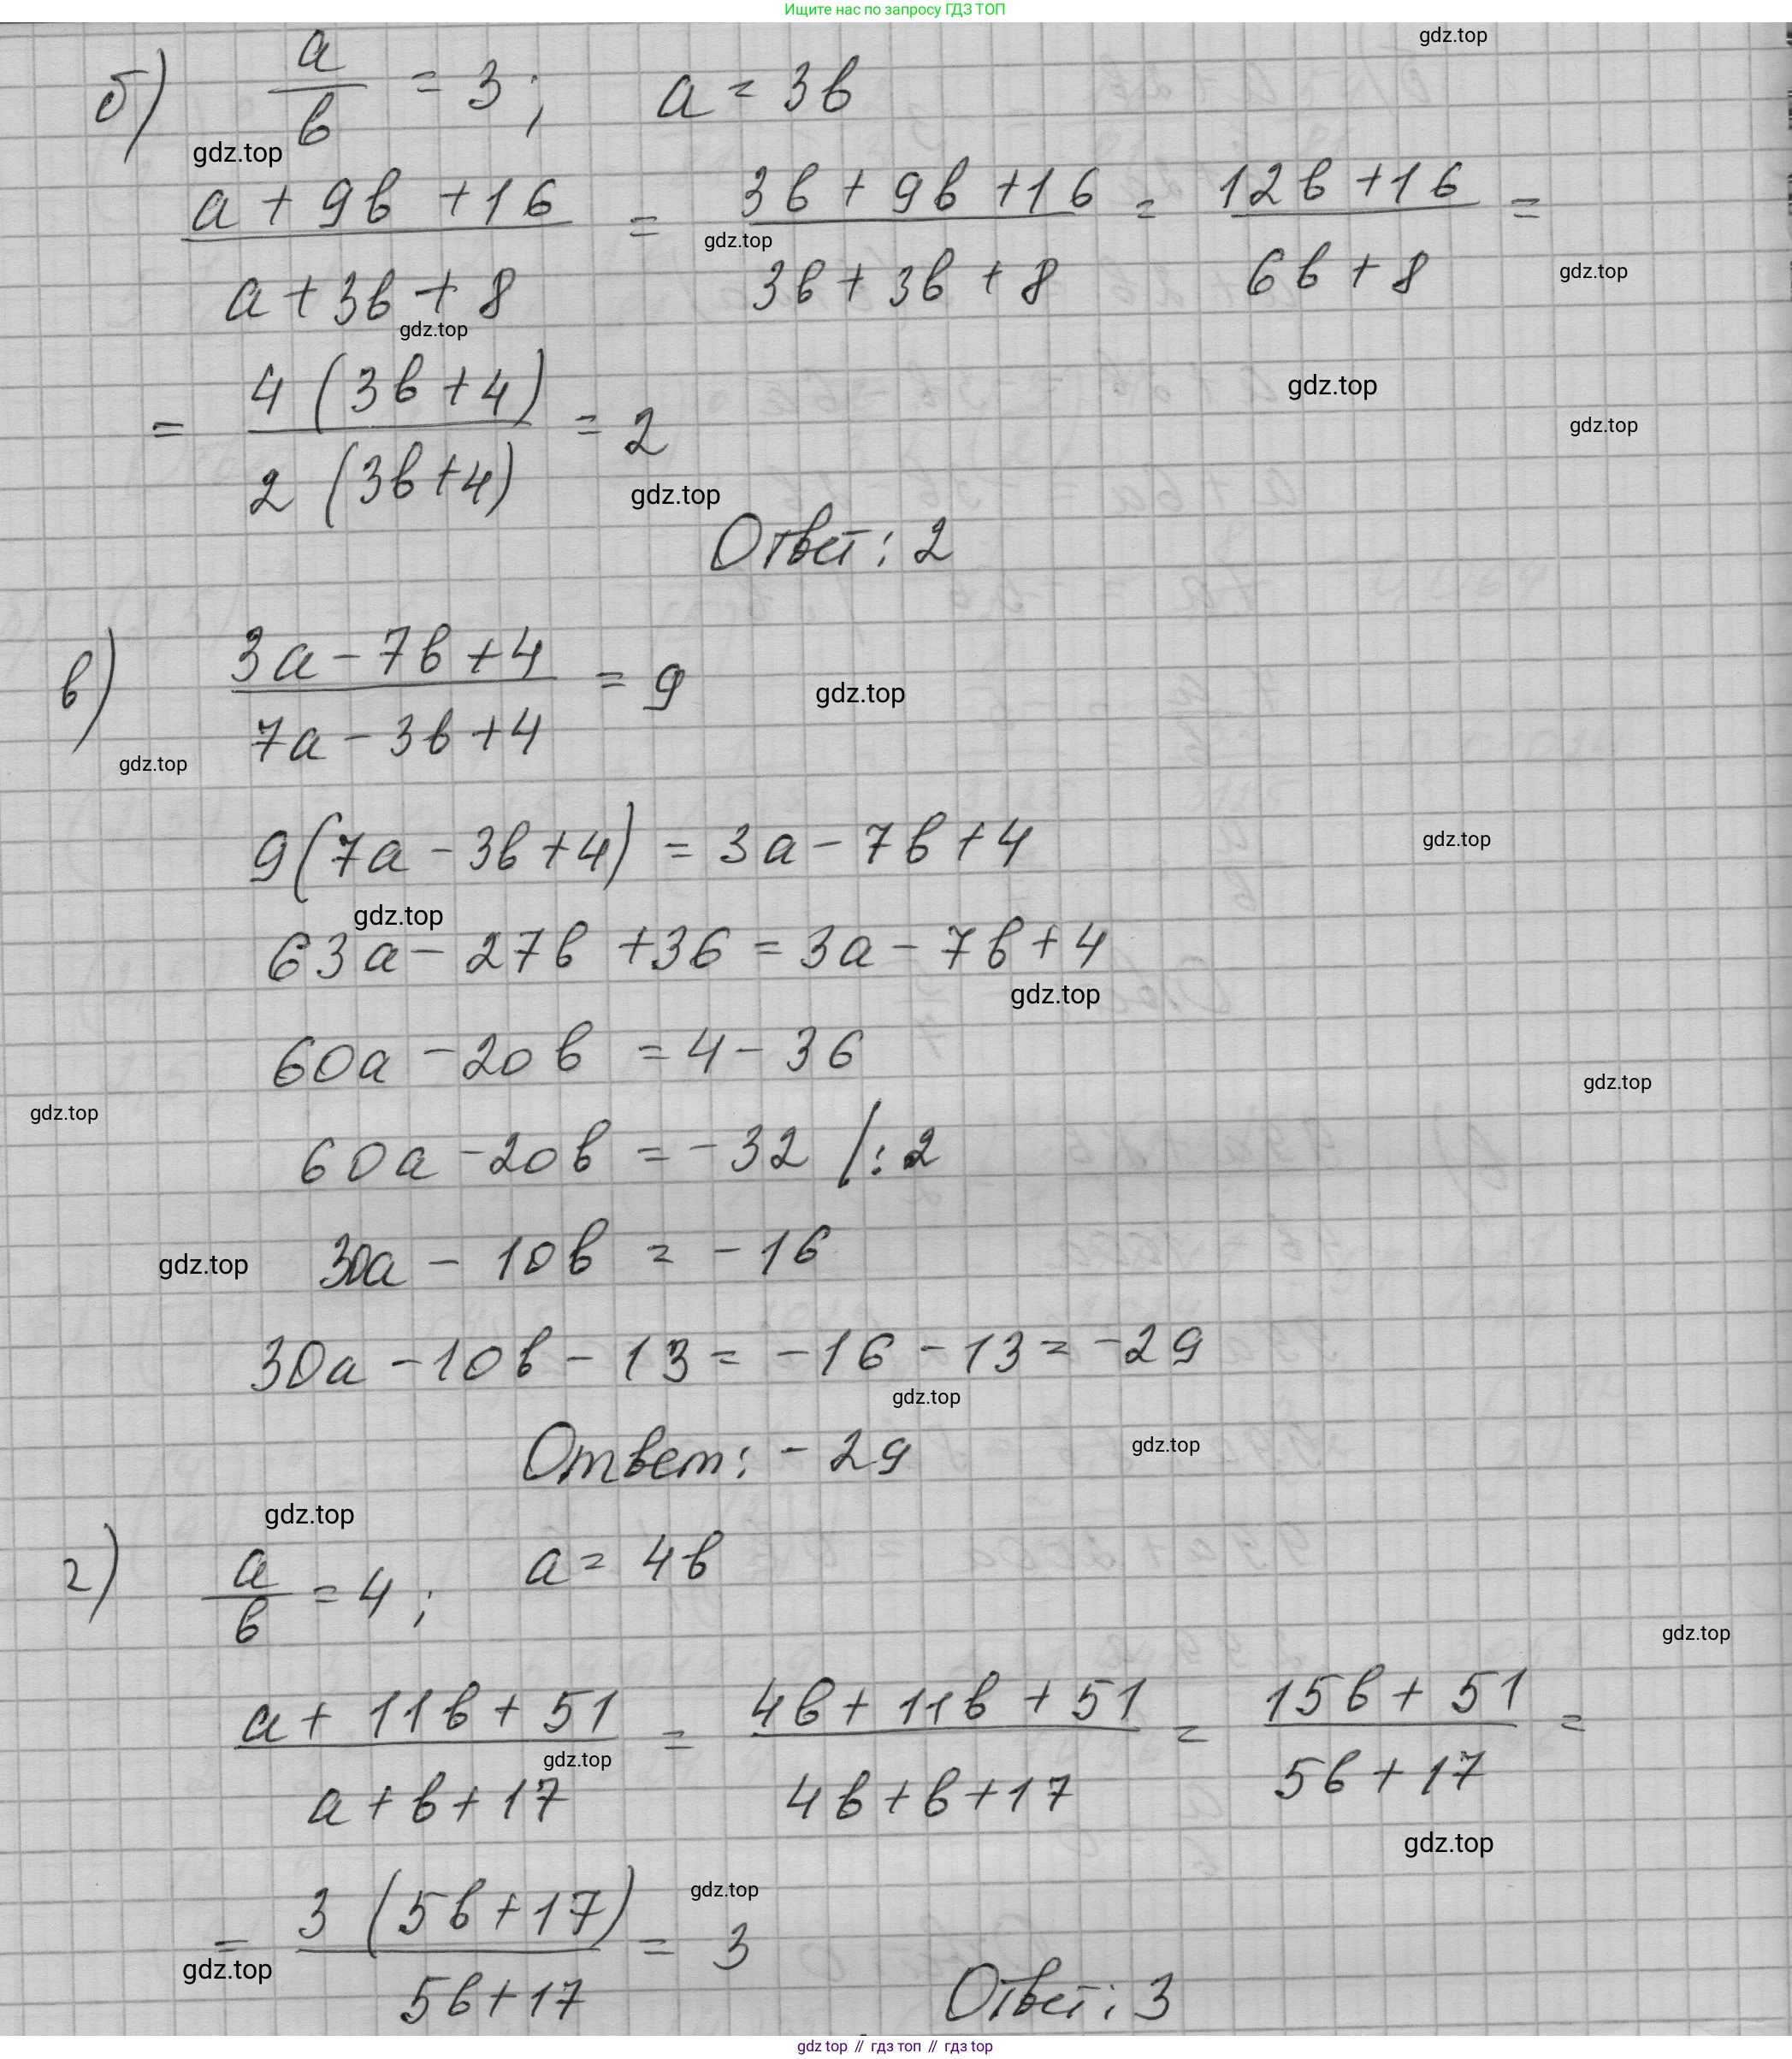 Ищите нас по запросу ГДЗ ТОП
gdz.top
б) a/b = 3; a = 3b
gdz.top
(a + 9b + 16)/(a + 3b + 8) = (3b + 9b + 16)/(3b + 3b + 8) = (12b + 16)/(6b + 8) =
gdz.top
gdz.top
gdz.top
= 4(3b + 4)/2(3b + 4) = 2
gdz.top
gdz.top
gdz.top
Ответ: 2
в) (3a - 7b + 4)/(7a - 3b + 4) = 9
gdz.top
gdz.top
9(7a - 3b + 4) = 3a - 7b + 4
gdz.top
gdz.top
63a - 27b + 36 = 3a - 7b + 4
gdz.top
60a - 20b = 4 - 36
gdz.top
gdz.top
60a - 20b = -32 /:2
30a - 10b = -16
gdz.top
30a - 10b - 13 = -16 - 13 = -29
gdz.top
Ответ: -29
gdz.top
gdz.top
г) a/b = 4; a = 4b
gdz.top
(a + 11b + 51)/(a + b + 17) = (4b + 11b + 51)/(4b + b + 17) = (15b + 51)/(5b + 17) =
gdz.top
gdz.top
= 3(5b + 17)/(5b + 17) = 3
gdz.top
gdz.top
Ответ: 3
gdz top // гдз топ // гдз top